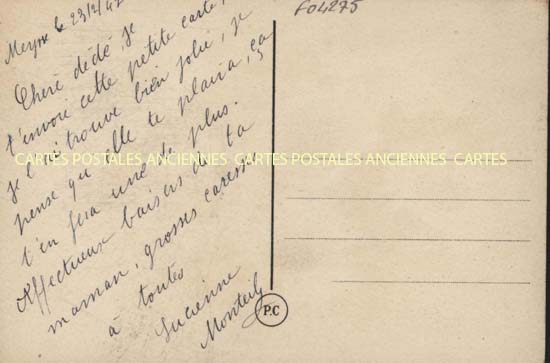 Meyne le 23/12/42
F04275
Cheré dédé, je
t'envoie cette petite carte,
je l'ai trouve bien jolie, je
pense qu'elle te plaira, ça
t'en fera une de plus.
Affectueux baisers de ta
maman, grosses caresses
à toutes
Lucienne
Monteil
CARTES POSTALES ANCIENNES CARTES POSTALES ANCIENNES CARTES
P.C